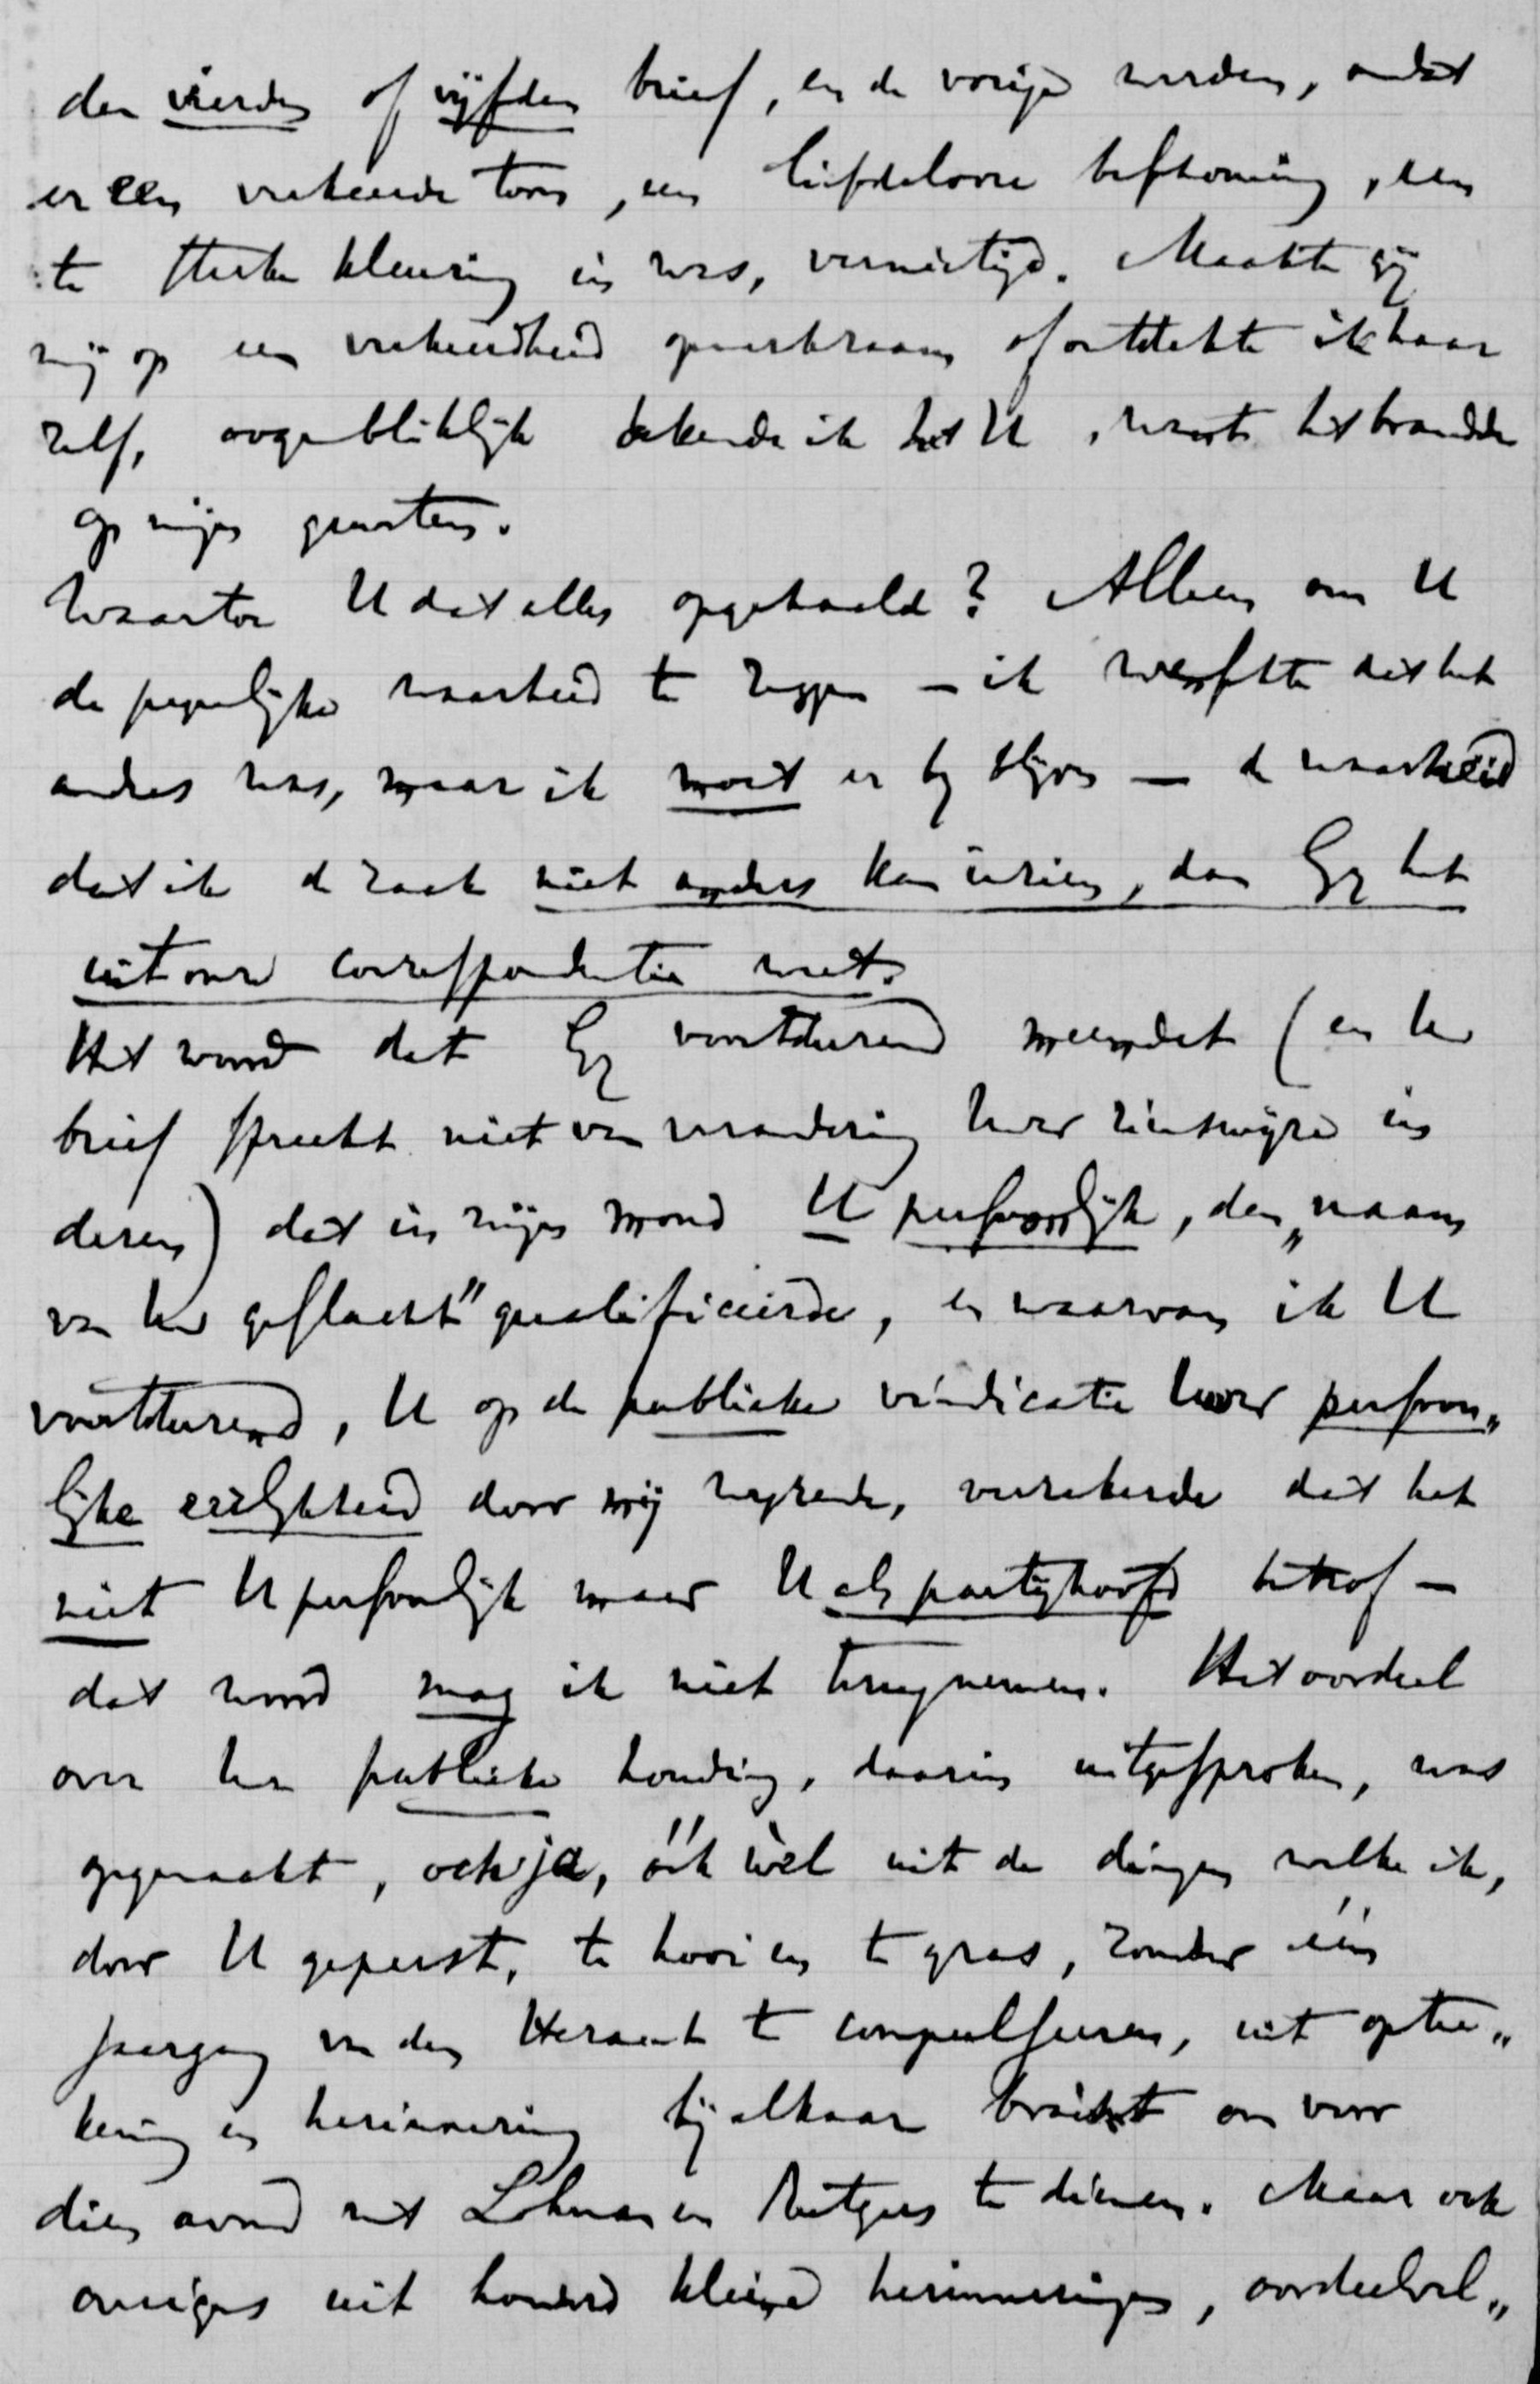 den vierden of vijfden brief, en de vorige werden, omdat
er een verkeerde toon, een liefdelooze bestraffing, een
te sterke kleuring in was, vernietigd. Maakte gij
mij op een verkeerdheid opmerkzaam of ontdekte ik haar
zelf, oogenblikkelijk bekende ik het U, want het brandde
op mijn geweten.
Waartoe U dat alles opgehaald? Alleen om U
de pijnlijke waarheid te zeggen – ik wenschte dat het
anders was, maar ik moet er bij blijven – de waarheid
dat ik de zaak niet anders kan inzien, dan Gij het
uit onze correspondentie weet.
Het woord dat Gij voortdurend meendet (en Uw
brief spreekt niet van verandering Uwer zienswijze in
dezen) dat in mijn mond U persoonlijk, den „naam
van Uw geslacht" qualificeerde, en waarvan ik U
voortdurend, U op de publieke vindicatie Uwer persoon„
lijke eerlijkheid door mij wijzende, verzekerde dat het
niet U persoonlijk maar U als partijhoofd betrof –
dat woord mag ik niet terugnemen. Het oordeel
over Uw publieke houding, daarin uitgesproken, was
opgemaakt, och ja, óók wèl uit de dingen welke ik,
door U geperst, te hooi en te gras, zonder één
jaargang van den Heraut te compulseeren, uit optee„
kening en herinnering bij elkaar bracht om voor
dien avond met Lohman en Rutgers te dienen. Maar ook
overigens uit honderd kleine herinneringen, oordeelvel„